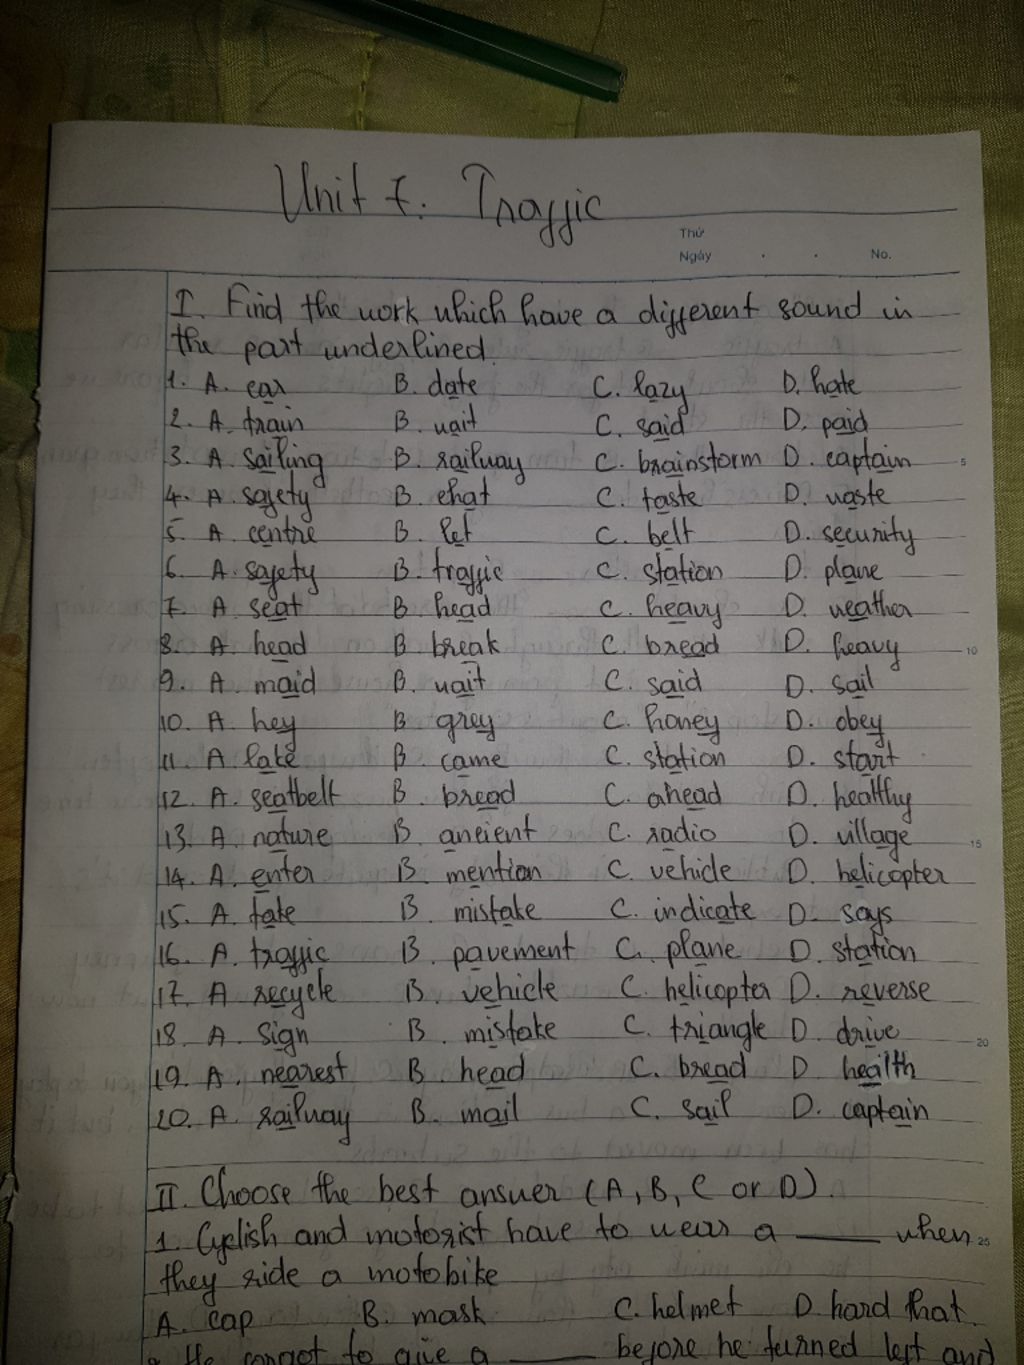 Unit 7. Traffic
Thứ
Ngày . . No.
I. Find the work which have a different sound in
the part underlined.
1. A. car B. date C. lazy D. hate
2. A. train B. wait C. said D. paid
3. A. sailing B. railway C. brainstorm D. captain 5
4. A. safety B. chat C. taste D. waste
5. A. centre B. let C. belt D. security
6. A. safety B. traffic C. station D. plane
7. A seat B. head C. heavy D. weather
8. A. head B. break C. bread D. heavy 10
9. A. maid B. wait C. said D. sail
10. A. hey B. grey C. honey D. obey
11. A. lake B. came C. station D. start
12. A. seatbelt B. bread C. ahead D. healthy
13. A. nature B. ancient C. radio D. village 15
14. A. enter B. mention C. vehicle D. helicopter
15. A. take B. mistake C. indicate D. says
16. A. traffic B. pavement C. plane D. station
17. A recycle B. vehicle C. helicopter D. reverse
18. A. sign B. mistake C. triangle D. drive 20
19. A. nearest B. head C. bread D. health
20. A. railway B. mail C. sail D. captain
II. Choose the best answer (A, B, C or D).
1. Cyclish and motorist have to wear a ____ when 25
they ride a motobike
A. cap B. mask C. helmet D. hard that.
He forgot to give a ____ before he turned left and